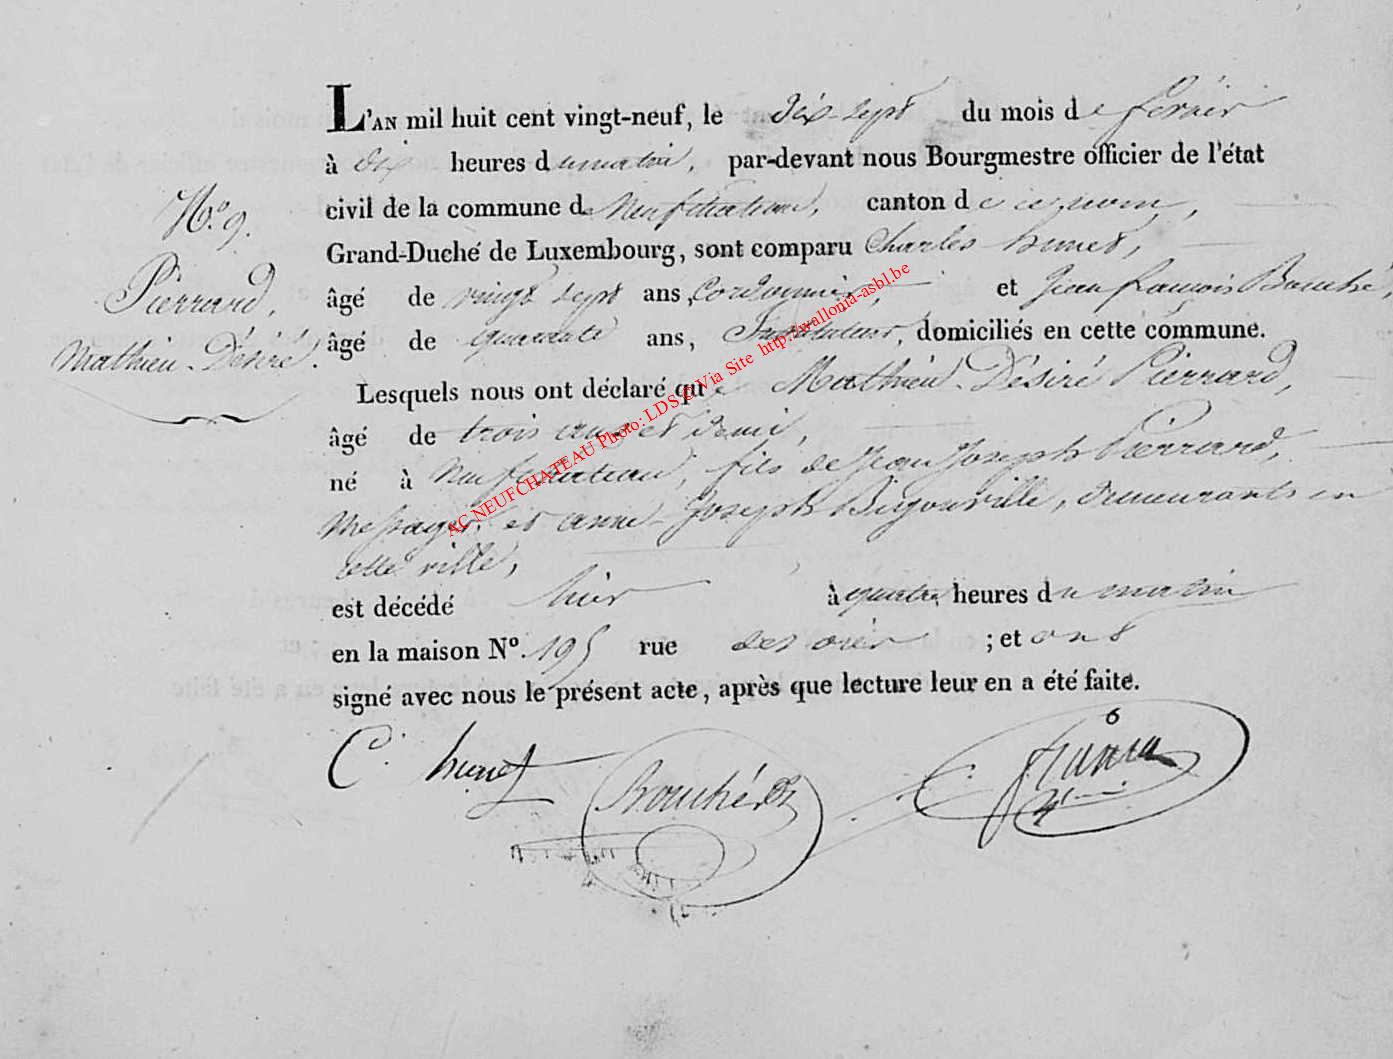 L'AN mil huit cent vingt-neuf, le dix-sept du mois de fevrier
à dix heures du matin, par-devant nous Bourgmestre officier de l'état
civil de la commune de Neufchateau, canton de ce nom,
Grand-Duché de Luxembourg, sont comparu Charles hunet,
âgé de vingt sept ans, Cordonnier, et Jean francois Bouché,
âgé de quarante ans, Instituteur, domiciliés en cette commune.
N.o 9.
Pierrard,
Mathieu-Désiré.
Lesquels nous ont déclaré que Mathieu-Désiré Pierrard,
âgé de trois ans et demi,
né à Neufchateau, fils de Jean Joseph Pierrard,
Messager, et anne-Joseph Bigonville, demeurants en
cette ville,
est décédé hier à quatre heures du matin
en la maison No. 195 rue ; et ont
signé avec nous le présent acte, après que lecture leur en a été faite.
C. hunet Bouché
6
AC NEUFCHATEAU Photo: LDS © Via Site http://wallonia-asbl.be